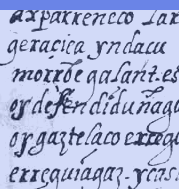 axparreneco Iar
geraçica yndacu
morroe galant. es
oy defendi dunaga
oy gaztelaco erreg
erreguiagaz. ycas